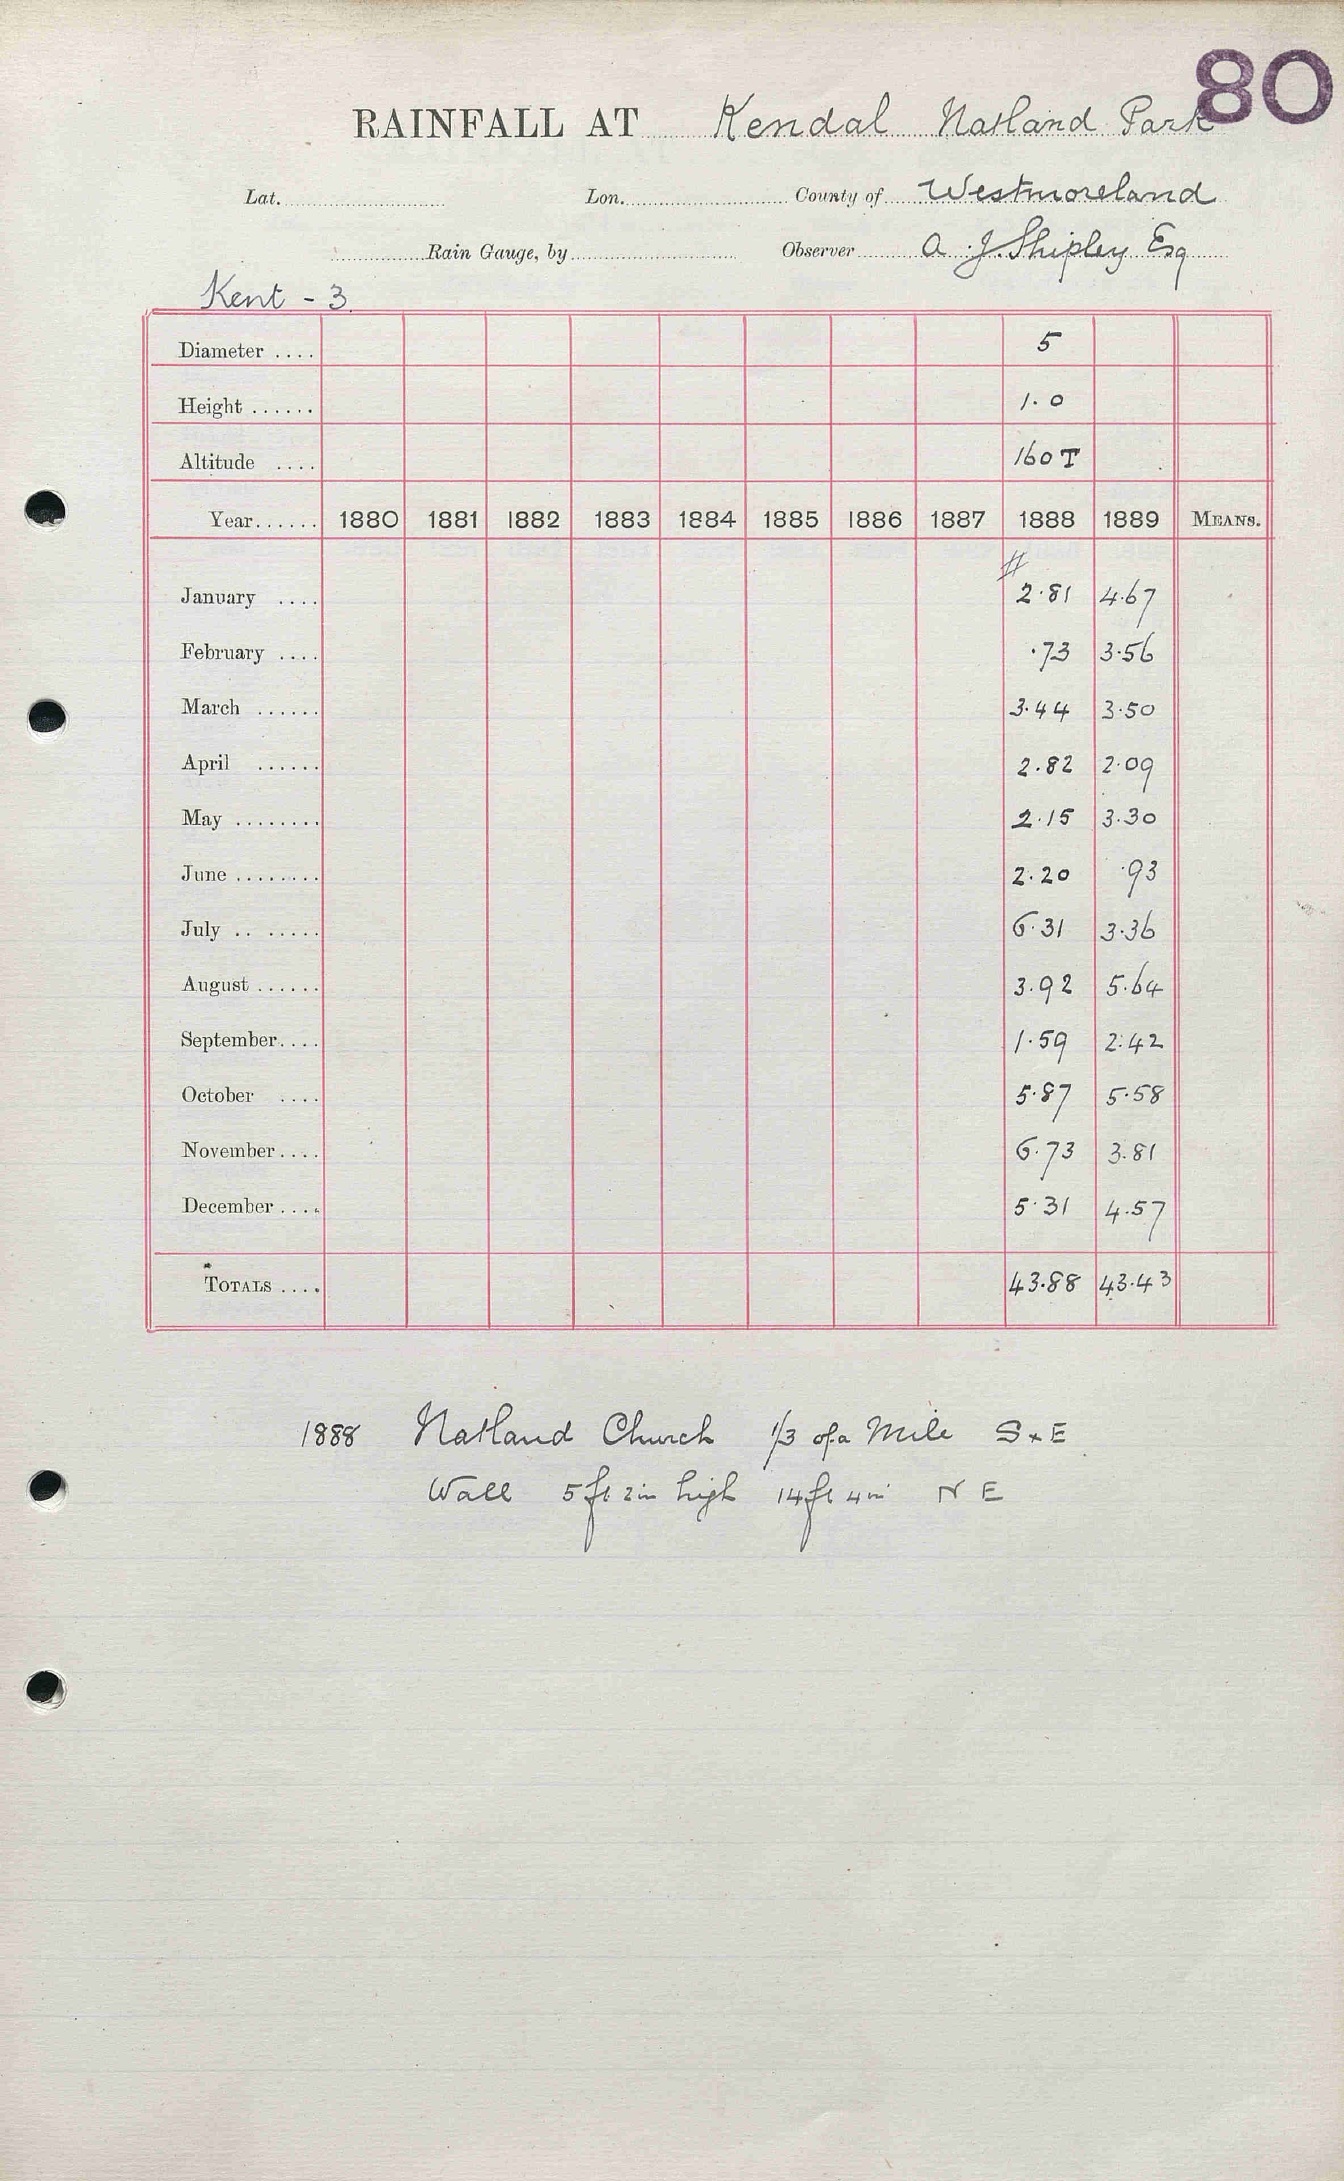 80
RAINFALL AT Kendal Natland Park
Lat. Lon. County of Westmoreland
Rain Gauge, by Observer A. J. Shipley Esq
Kent - 3
Diameter .... 5
Height ...... 1.0
Altitude .... 160 T
Year...... 1880 1881 1882 1883 1884 1885 1886 1887 1888 1889 MEANS.
#
January .... 2.81 4.67
February .... .73 3.56
March ...... 3.44 3.50
April ...... 2.82 2.09
May ........ 2.15 3.30
June ........ 2.20 .93
July .. ..... 6.31 3.36
August ...... 3.92 5.64
September.... 1.59 2.42
October .... 5.87 5.58
November.... 6.73 3.81
December .... 5.31 4.57
TOTALS .... 43.88 43.43
1888 Natland Church 1/3 of a Mile S x E
Wall 5ft 2in high 14ft 4in N E